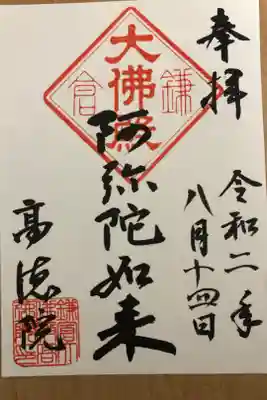 奉拝
令和二年
八月十四日
鎌倉
大佛殿
阿弥陀如来
高徳院